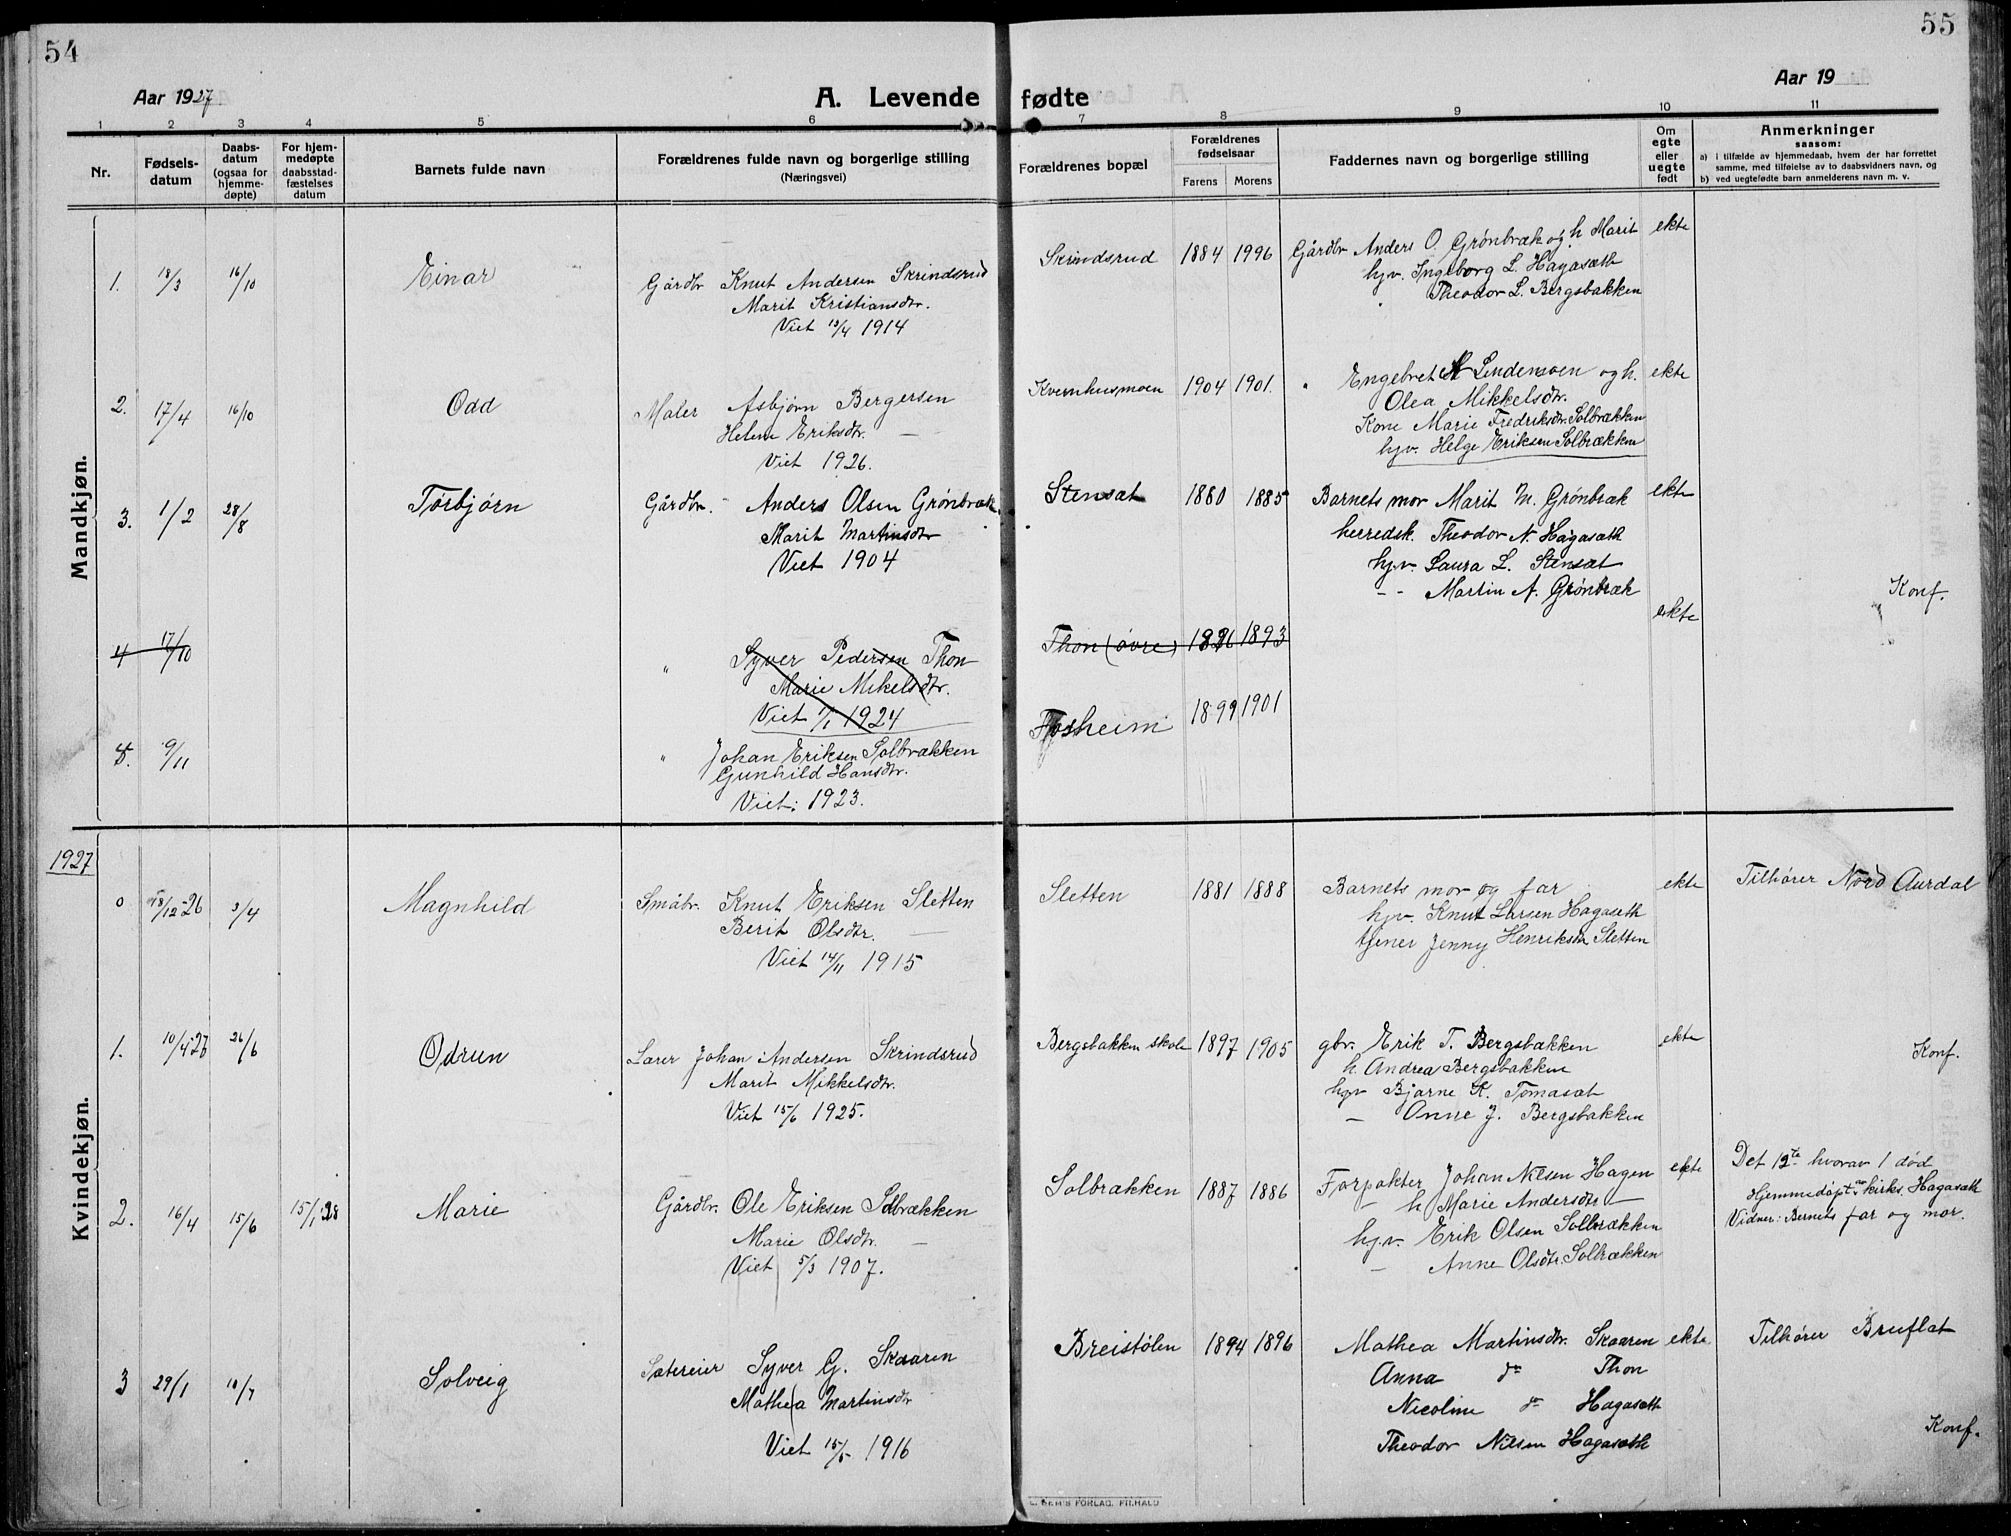 54
55
Aar 1927
A. Levende fødte
Aar 19
1 2 3 4 5 6 7 8 9 10 11
Nr.
Fødsels-
datum
Daabs-
datum
(ogsaa for
hjemme-
døpte)
For hjem-
medøpte
daabsstad-
fæstelses
datum
Barnets fulde navn
Forældrenes fulde navn og borgerlige stilling
(Næringsvei)
Forældrenes bopæl
Forældrenes
fødselsaar
Farens Morens
Faddernes navn og borgerlige stilling
Om
egte
eller
uegte
født
Anmerkninger
saasom:
a) i tilfælde av hjemmedaab, hvem der har forrettet
samme, med tilføielse av to daabsvidners navn, og
b) ved uegtefødte barn anmelderens navn m. v.
Mandkjøn.
1. 18/3 16/10 Einar
Gårdbr Knut Andersen Skrindsrud
Marit Kristiansdtr.
Viet 13/4 1914
Skrindsrud 1884 1996
Gårdbr Anders O. Grønbræk og h. Marit
hjv. Ingeborg L. Hagasæth
Theodor L. Bergsbakken
ekte
2. 17/4 16/10 Odd
Maler Asbjørn Bergersen
Helene Eriksdtr. —
Viet 1926.
Kvernhusmoen 1904 1901.
" Engebret M Lindemoen og h.
Olea Mikkelsdtr.
Kone Marie Fredriksdtr. Solbrækken
hjv. Helge Eriksen Solbrækken
ekte
3. 1/2 28/8 Torbjørn
Gårdbr. Anders Olsen Grønbræk
Marit Martinsdtr
Viet 1904
Stensæt 1880 1885
Barnets mor Marit M. Grønbræk
herredsk. Theodor N. Hagasæth
hjv. Laura L. Stensæt
- - Martin A. Grønbræk
ekte
Konf.
4 17/10
" Syver Pedersen Thon
Marie Mikelsdtr.
Viet 1/1 1924
Thon (øvre) 1896 1893
ekte
4. 9/11
" Johan Eriksen Solbrækken
Gunhild Hansdtr.
Viet: 1923.
Fosheim 1899 1901
1927
Kvindekjøn.
0 18/12-26 3/4 Magnhild
Småbr. Knut Eriksen Sletten
Berit Olsdtr. —
Viet 14/11 1915
Sletten 1881 1888
Barnets mor og far
hjv. Knut Larsen Hagaseth
tjener Jenny Henriksdtr Sletten
ekte
Tilhører Nord Aurdal
1. 10/4-27 26/6 Odrun
Lærer Johan Andersen Skrindsrud
Marit Mikkelsdtr.
Viet 15/6 1925.
Bergsbakken skole 1897 1905
gbr. Erik T. Bergsbakken
h. Andrea Bergsbakken
hjv Bjarne K. Tomasæt
— Anne J. Bergsbakken
ekte
Konf.
2. 16/4 15/6 15/1 28 Marie
Gårdbr. Ole Eriksen Solbrækken
Marie Olsdtr. —
Viet 5/3 1907.
Solbrækken 1887 1886
Forpakter Johan Nilsen Hagen
— h Marie Andersdtr —
hjv. Erik Olsen Solbrækken
— Anne Olsdtr. Solbrækken
ekte
Det 12te hvorav 1 død
Hjemmedøpt kirks. Hagasæth
Vidner: Barnets far og mor.
3 29/1 10/7 Solveig
Sætereier Syver G. Skaaren
Mathea Martinsdtr
Viet 15/5 1916
Breistølen 1894 1896
Mathea Martinsdtr. Skaaren
Anna do Thon
Nicoline do Hagasæth
Theodor Nilsen Hagasæth
ekte
Tilhører Bruflat
Konf.
FORLAG, FR.HALD